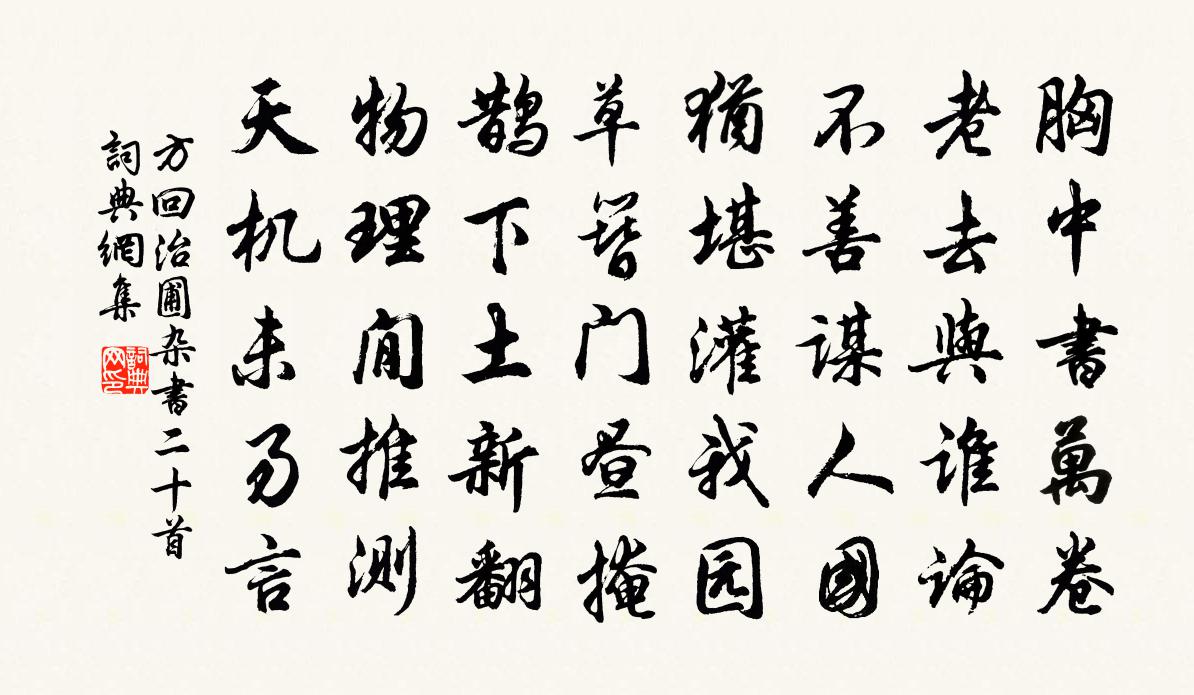 胸中書萬卷
老去與誰論
不善謀人國
猶堪灌我园
草簪门昼掩
鵲下土新翻
物理閒推測
天机未易言
方回治圃杂書二十首
詞典網集
詞典网印